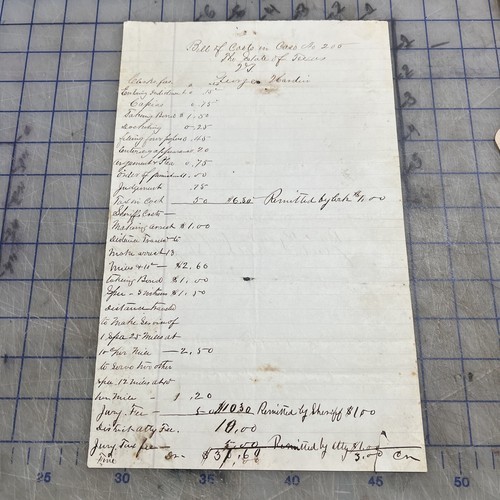 Bill of Costs in Case No 205
The State of Texas
vs
George Hardin
Clerks fees
Entering Indictment .15
Capias 0.75
Taking Bond $1.50
Docketing 0.25
0.45
Entering appearance .20
arrignment & Plea 0.75
Order of 1.00
Judgement .75
Tax on Cost 50 $6.30 Remitted by Clk $1.00
Sheriffs Costs —
Making arrest $1.00
distance Traveled to
make arrest 13
Miles — $2.60
taking Bond $1.00
$1.50
distance traveled
to Make Service of
1 Spa 25 Miles at
10c per Mile — 2.50
to Serve two other
Spa 12 miles at 10
per Mile — 1.20
Jury Fee — 50 $10.30 Remitted by Sheriff $1.00
District atty Fee. 10.00
Jury Tax fee — 5.00 Remitted by atty $1.00
Fine $31.60 3.00 Cr
25 30 35 40 45